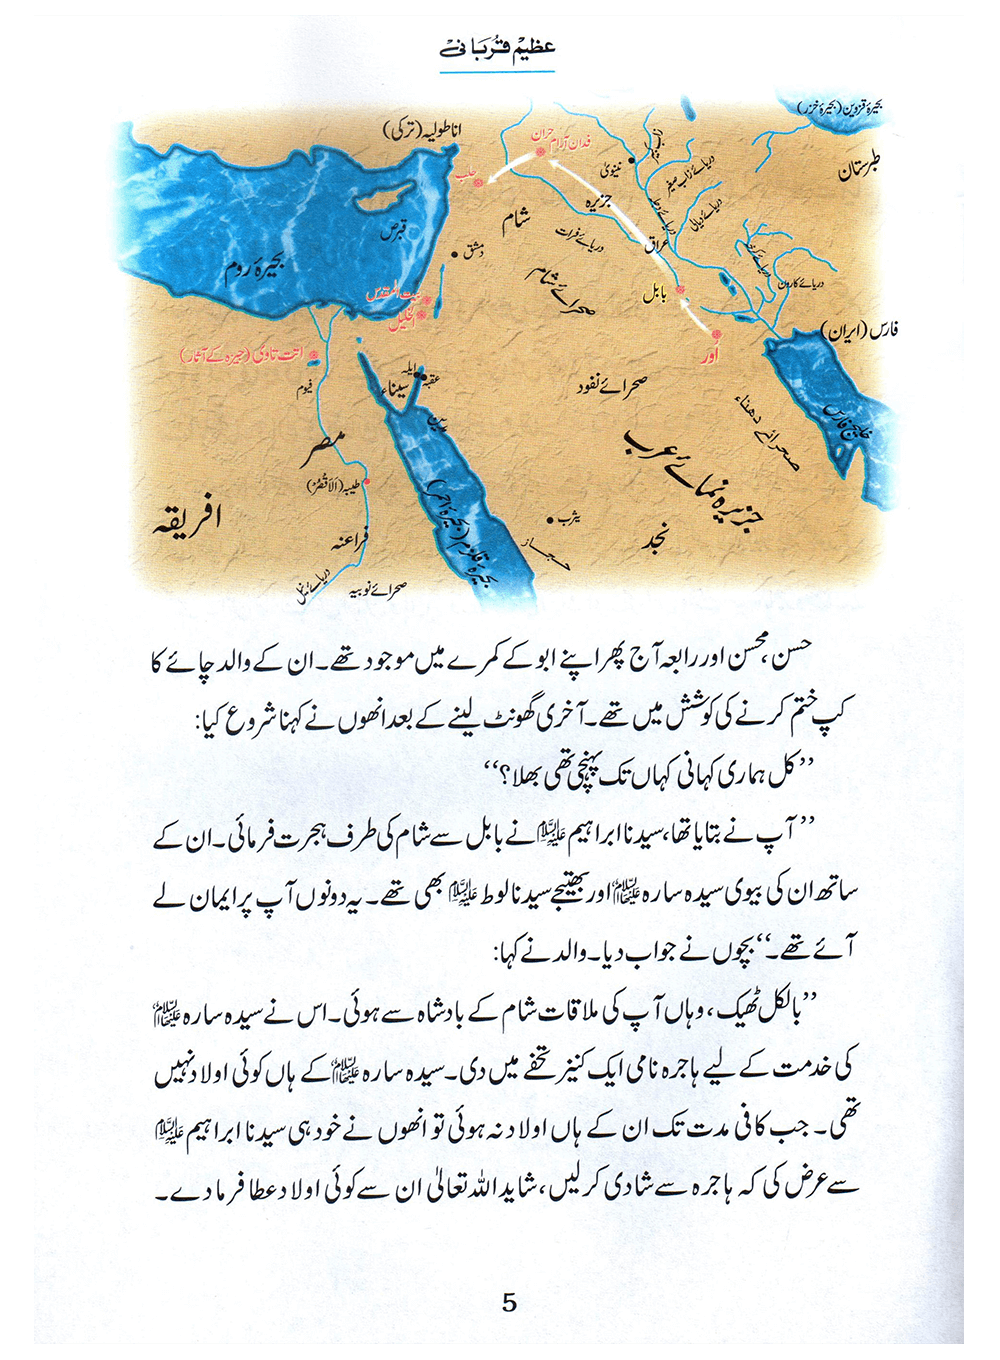 عظیم قربانی
بحیرۂ قزوین (بحیرۂ خزر)
اناطولیہ (ترکی)
طبرستان
حران
فدان آرام
حلب
نینویٰ
دریائے زاب صغیر
دریائے دجلہ
دریائے دیالی
جزیرہ
شام
قبرص
دمشق
دریائے فرات
عراق
دریائے کارون
بحیرۂ روم
صحرائے شام
بابل
بیت المقدس
الخلیل
فارس (ایران)
اُور
اتت تاوی (جیزہ کے آثار)
ایلہ
عقبہ
سیناء
فیوم
صحرائے نفود
صحرائے دھناء
خلیج فارس
مدین
مصر
جزیرہ نمائے عرب
طیبہ (الاقصُر)
بحیرۂ قلزم (بحیرۂ احمر)
افریقہ
یثرب
نجد
حجاز
فراعنہ
دریائے نیل
صحرائے نوبیہ
حسن، محسن اور رابعہ آج پھر اپنے ابو کے کمرے میں موجود تھے۔ ان کے والد چائے کا
کپ ختم کرنے کی کوشش میں تھے۔ آخری گھونٹ لینے کے بعد انھوں نے کہنا شروع کیا:
’’کل ہماری کہانی کہاں تک پہنچی تھی بھلا؟‘‘
’’آپ نے بتایا تھا، سیدنا ابراہیم علیہ السلام نے بابل سے شام کی طرف ہجرت فرمائی۔ ان کے
ساتھ ان کی بیوی سیدہ سارہ علیہا السلام اور بھتیجے سیدنا لوط علیہ السلام بھی تھے۔ یہ دونوں آپ پر ایمان لے
آئے تھے۔‘‘ بچوں نے جواب دیا۔ والد نے کہا:
’’بالکل ٹھیک، وہاں آپ کی ملاقات شام کے بادشاہ سے ہوئی۔ اس نے سیدہ سارہ علیہا السلام
کی خدمت کے لیے ہاجرہ نامی ایک کنیز تحفے میں دی۔ سیدہ سارہ علیہا السلام کے ہاں کوئی اولاد نہیں
تھی۔ جب کافی مدت تک ان کے ہاں اولاد نہ ہوئی تو انھوں نے خود ہی سیدنا ابراہیم علیہ السلام
سے عرض کی کہ ہاجرہ سے شادی کر لیں، شاید اللہ تعالیٰ ان سے کوئی اولاد عطا فرما دے۔
5